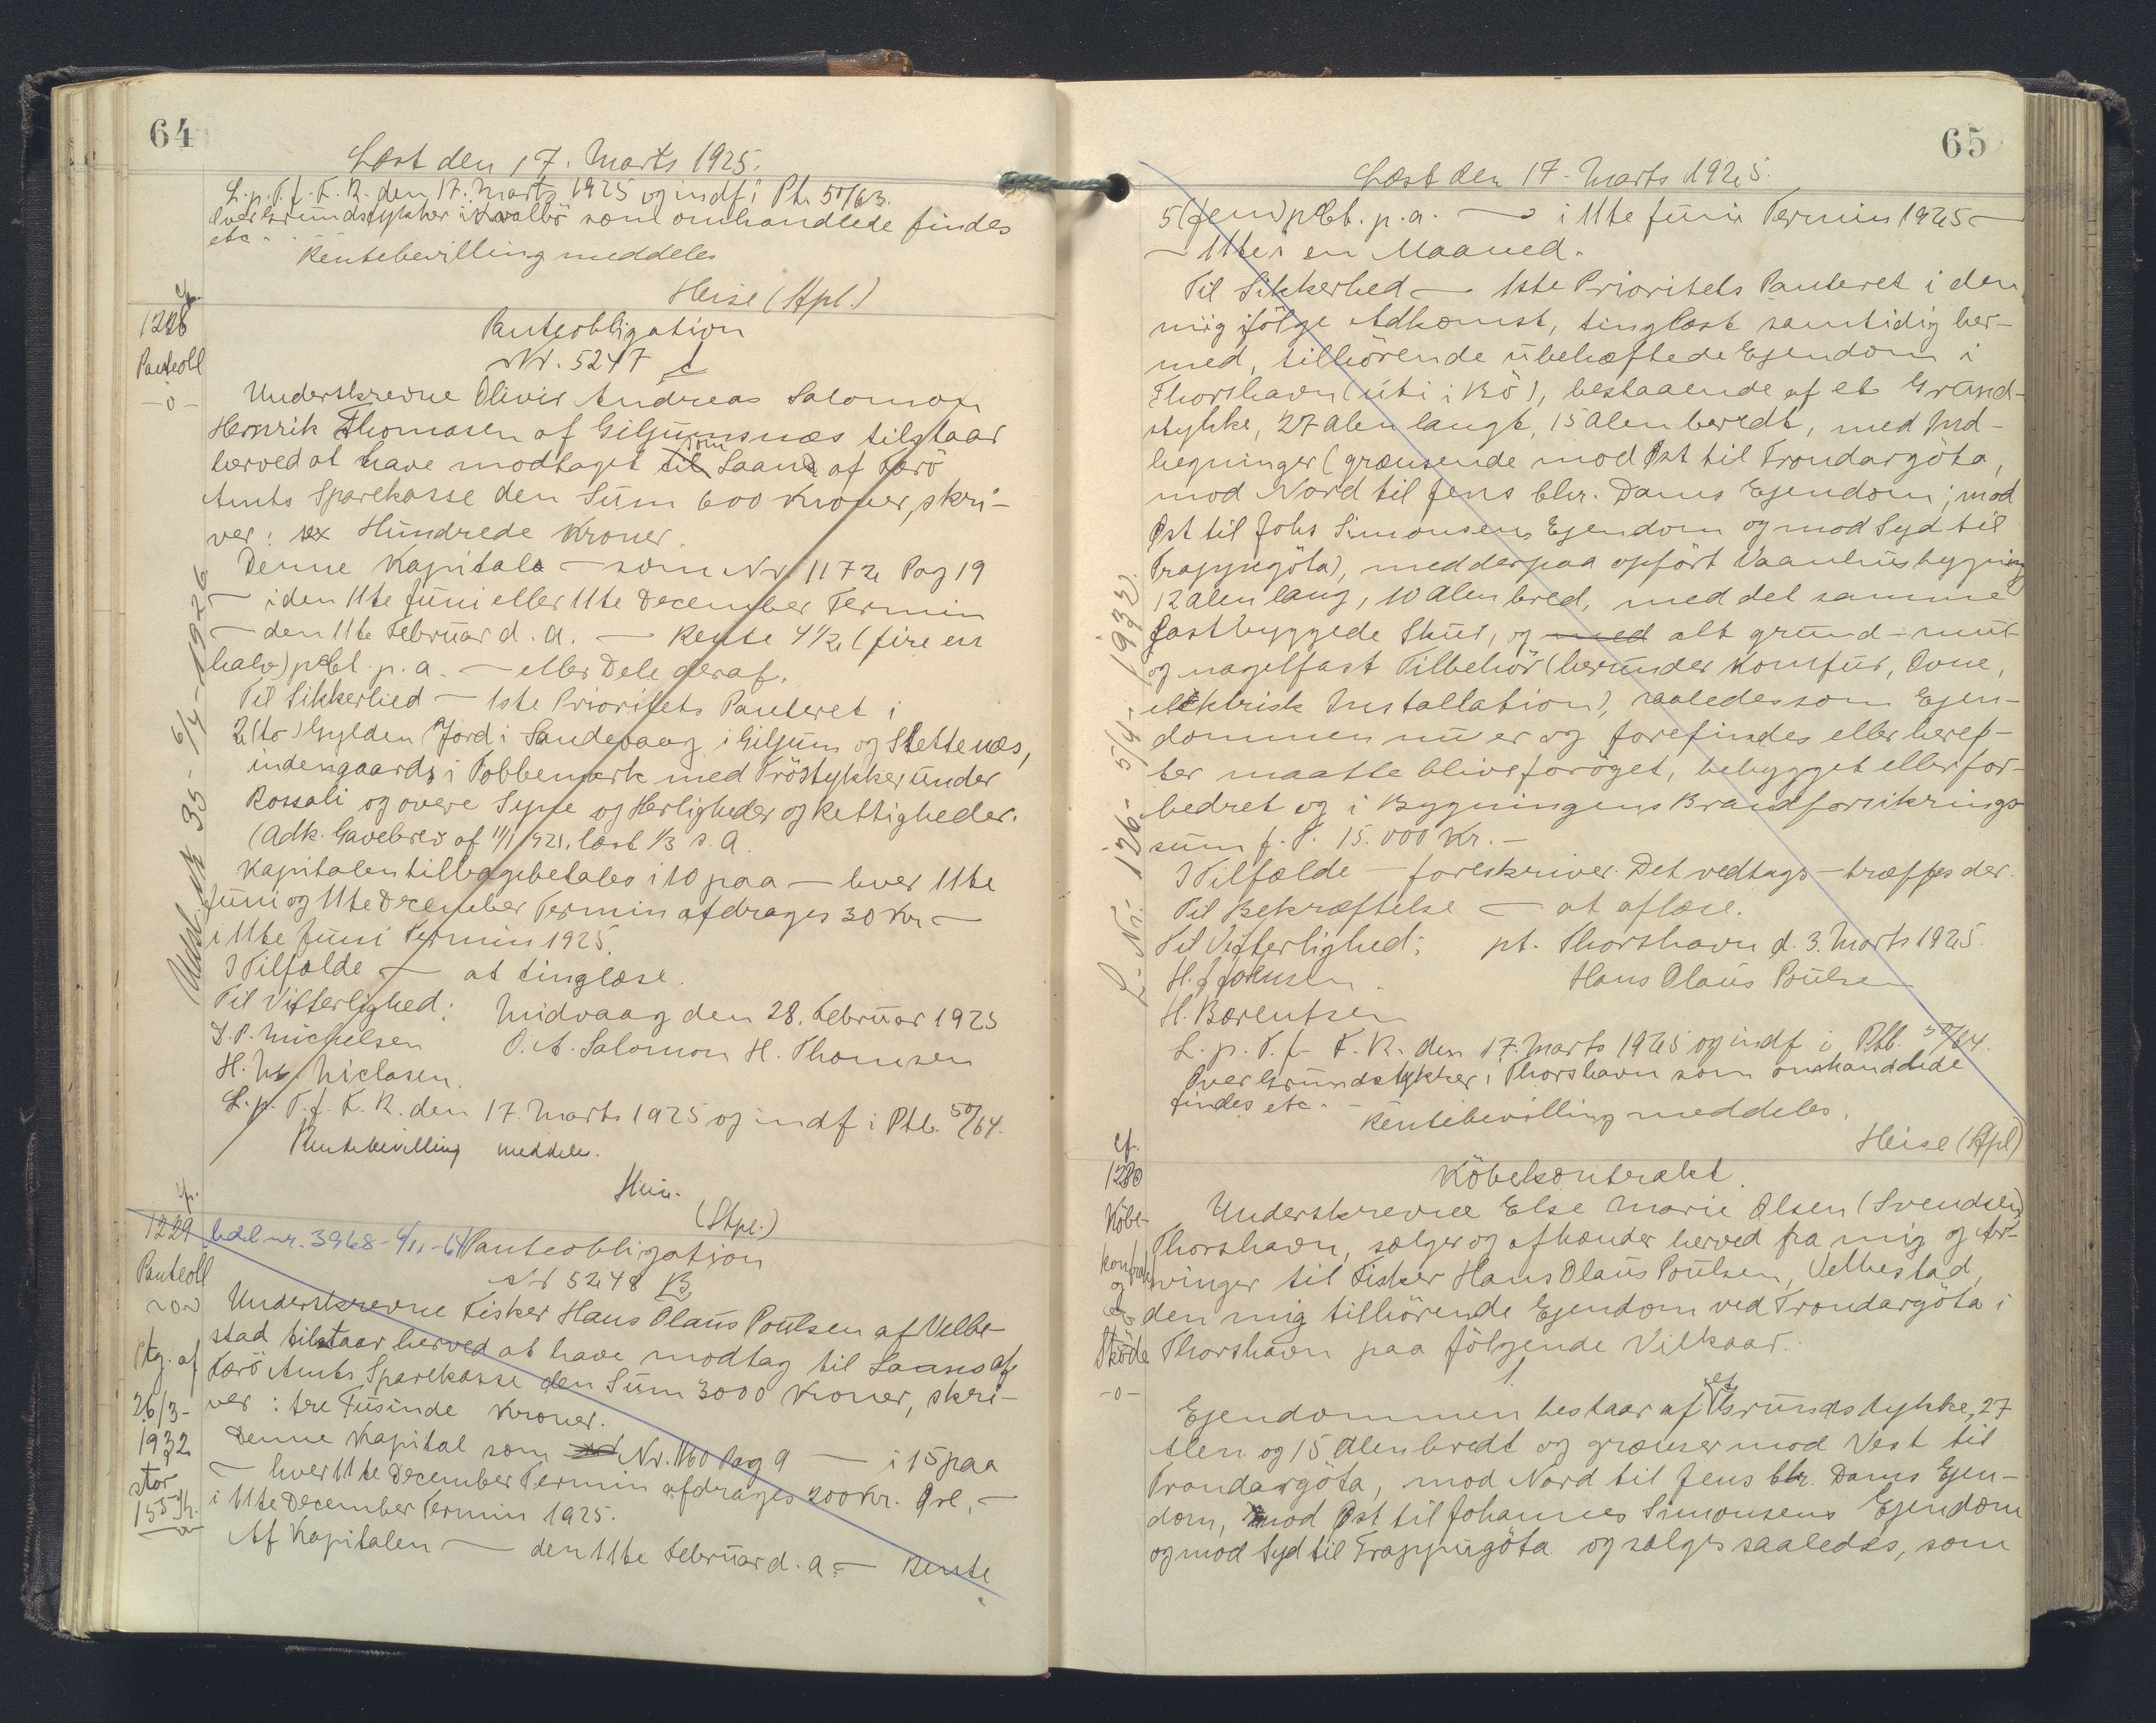 64
Læst den 17. Marts 1925.
L. p. T. f. F. R. den 17. Marts 1925 og indf i Ptb. 50/63.
Over Grundstykker i Kvalbö som omhandlede findes
etc.
Rentebevilling meddeles
Heise (Stpl.)
cf.
1228
Panteobl
-o-
Panteobligation
Nr. 5247
Underskrevne Olivir Andreas Salomon
Henrik Thomasen af Giljumsnæs tilstaar
herved at have modtaget til Laans af Færö
som
Amts Sparekasse den Sum 600 Kroner, skri-
ver: sex Hundrede Kroner.
Denne Kapitals — som Nr. 1172 Pag 19
— i den 11te Juni eller 11te December Termin
— den 11te Februar d. A. — Rente 4 1/2 (fire en
halv) pCt. p. a. — eller Dele deraf.
Til Sikkerhed — 1ste Prioritets Panteret i
2 (to) Gylden Jord i Sandevaag i Giljum og Slettenæs,
indengaards i Tobbemork med Tröstykker under
Rossali og overe Syne og Herligheder og Rettigheder.
(Adk. Gavebrev af 11/1 1921, læst 1/3 s. A.
Kapitalen tilbagebetales i 10 paa — hver 11te
Juni og 11te December Termin afdrages 30 Kr —
i 11te Juni Termin 1925.
I Tilfælde — at tinglæse.
Til Vitterlighed: Midvaag den 28. Februar 1925
D. P. Michelsen O. A. Salomon H. Thomsen
H. W. Niclasen.
L. p. T. f. F. R. den 17. Marts 1925 og indf i Ptb. 50/64.
Rentebevilling meddeles.
Heise.
(Stpl.)
35- 6/4-1926
cf.
1229
Panteobl
-o-
Ptg. af
26/3-
1932
stor
155 Kr.
Udsl nr. 3968-4/11-64
Panteobligation
Nr 5248 B
Underskrevne Fisker Hans Olaus Poulsen af Velbe-
stad tilstaar herved at have modtag til Laans af
Færö Amts Sparekasse den Sum 3000 Kroner, skri-
ver: tre Tusinde Kroner.
Denne Kapital som Nr. 1160 Pag 9 — i 15 paa
— hver 11te December Termin afdrages 200 Kr. —
i 11te December Termin 1925.
Af Kapitalen — den 11te Februar d. a. — Rente
65
Læst den 17. Marts 1925.
5 (fem) pCt. p. a. — i 11te Juni Termin 1925 —
— 11ter en Maaned.
Til Sikkerhed — 1ste Prioritets Panteret i den
mig ifölge Adkomst, tinglæst samtidig her-
med, tilhörende ubehæftede Ejendom i
Thorshavn (uti i Bö), bestaaende af et Grund-
stykke, 27 Alen langt, 15 Alen bredt, med Ind-
hegninger (grænsende mod Øst til Trondargöta,
mod Nord til Jens Chr. Dams Ejendom; mod
Øst til Johs Simonsens Ejendom og mod Syd til
Trappugöta), med derpaa opfört Vaaanhusbygning
12 Alen lang, 10 Alen bred, med det samme
fastbyggede Skur, og med alt grund-mur-
og nagelfast Tilbehör (herunder Komfur, Ovne,
elektrisk Installation), saaledes som Ejen-
dommen nu er og forefindes eller heref-
ter maatte blive foröget, bebygget eller for-
bedret og i Bygningens Brandforsikrings-
sum f. T. 15.000 Kr. —
I Tilfælde — foreskriver. Det vedtags — træffes der.
Til Bekræftelse — at aflæse.
Til Vitterlighed: pt. Thorshavn d. 3. Marts 1925.
H. J. Joensen. Hans Olaus Poulsen
H. Barentsen
L. p. T. f. F. R. den 17. Marts 1925 og indf i Ptb. 50/64.
Over Grundstykker i Thorshavn som omhandlede
findes etc. —
Rentebevilling meddeles.
Heise (Stpl)
L. Nr. 126- 5/4- 1932.
cf.
1230
Köbe-
kontrakt
og
Sköde
-o-
Köbekontrakt.
Underskrevne Else Marie Olsen (Svendsen)
Thorshavn, sælger og afhænder herved fra mig og Ar-
vinger til Fisker Hans Olaus Poulsen, Velbestad,
den mig tilhörende Ejendom ved Trondargöta i
Thorshavn paa fölgende Vilkaar:
1.
Ejendommen bestaar af et Grundstykke, 27
Alen og 15 Alen bredt og grænser mod Vest til
Trondargöta, mod Nord til Jens Chr. Dams Ejen-
dom, mod Øst til Johannes Simonsens Ejendom
og mod Syd til Trappugöta og sælges saaledes, som